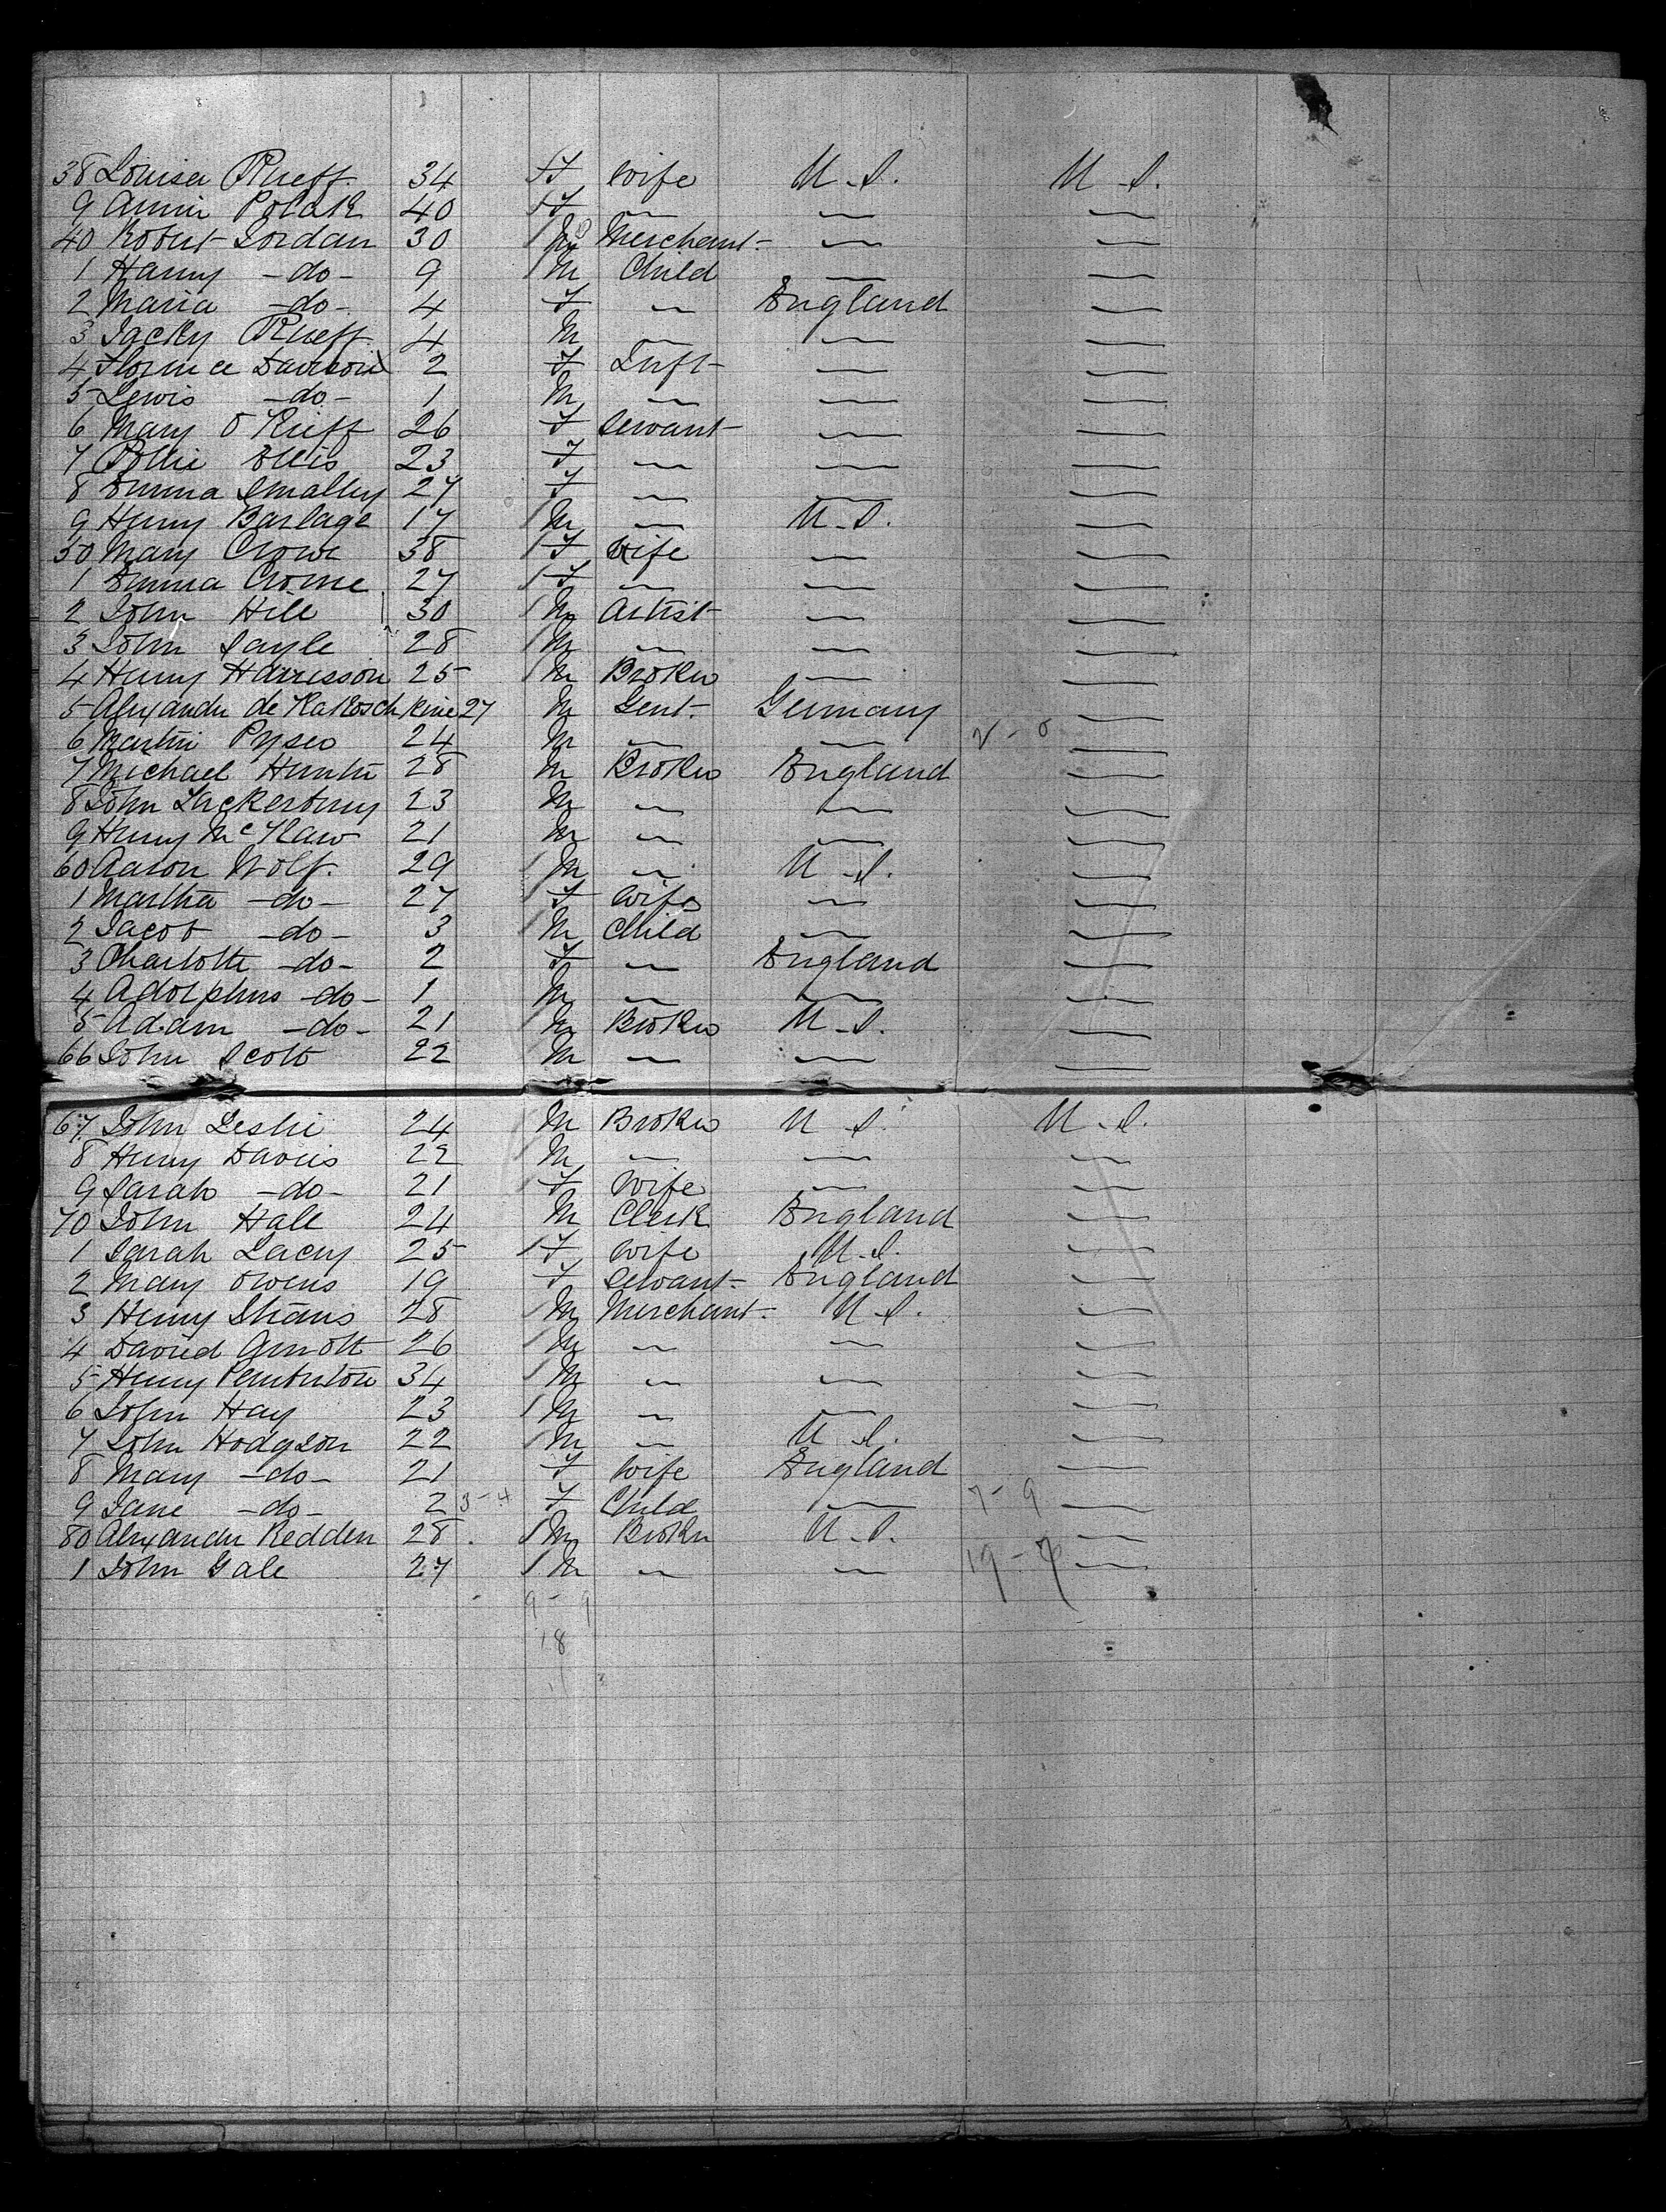 38 Louisa Rueff. 34 F Wife U.S. U.S.
9 Annie Polak 40 F — — —
40 Robert Jordan 30 M Merchant — —
1 Harry -do- 9 M Child — —
2 Maria -do- 4 F — England —
3 Jacky Rueff 4 M — — —
4 Florence 2 F Inft — —
5 Lewis -do- 1 M — — —
6 Mary O'Kieff 26 F Servant — —
7 Pollie Ellis 23 F — — —
8 Emma Smalley 27 F — — —
9 Henry Barlage 17 M — U.S. —
50 Mary Crowe 38 F Wife — —
1 Emma Crome 27 F — — —
2 John Hill 30 M Artist — —
3 John Sayle 28 M — — —
4 Henry Harrisson 25 M Broker — —
5 Alexander de 27 M Gent. Germany —
6 24 M — — —
7 Michael Hunter 28 M Broker England —
8 John 23 M — — —
9 Henry 21 M — — —
60 Aaron Wolf. 29 M — U.S. —
1 Martha -do- 27 F Wife — —
2 Jacob -do- 3 M Child — —
3 Charlotte -do- 2 F — England —
4 Adolphus -do- 1 M — — —
5 Adam -do- 21 M Broker U.S. —
66 John Scott 22 M — — —
67 John Leslie 24 M Broker U.S. U.S.
8 Henry Davis 22 M — — —
9 Sarah -do- 21 F Wife — —
70 John Hall 24 M Clerk England —
1 Sarah Lacey 25 F Wife U.S. —
2 Mary Owens 19 F Servant England —
3 Henry 28 M Merchant U.S. —
4 David Arnott 26 M — — —
5 Henry Pemberton 34 M — — —
6 John Hay 23 M — — —
7 John Hodgson 22 M — U.S. —
8 Mary -do- 21 F Wife England —
9 Jane -do- 2 3-4 F Child — 7-9 —
80 Alexander Redden 28 M Broker U.S. —
1 John Gale 27 M — — 19-7 —
9-9
18